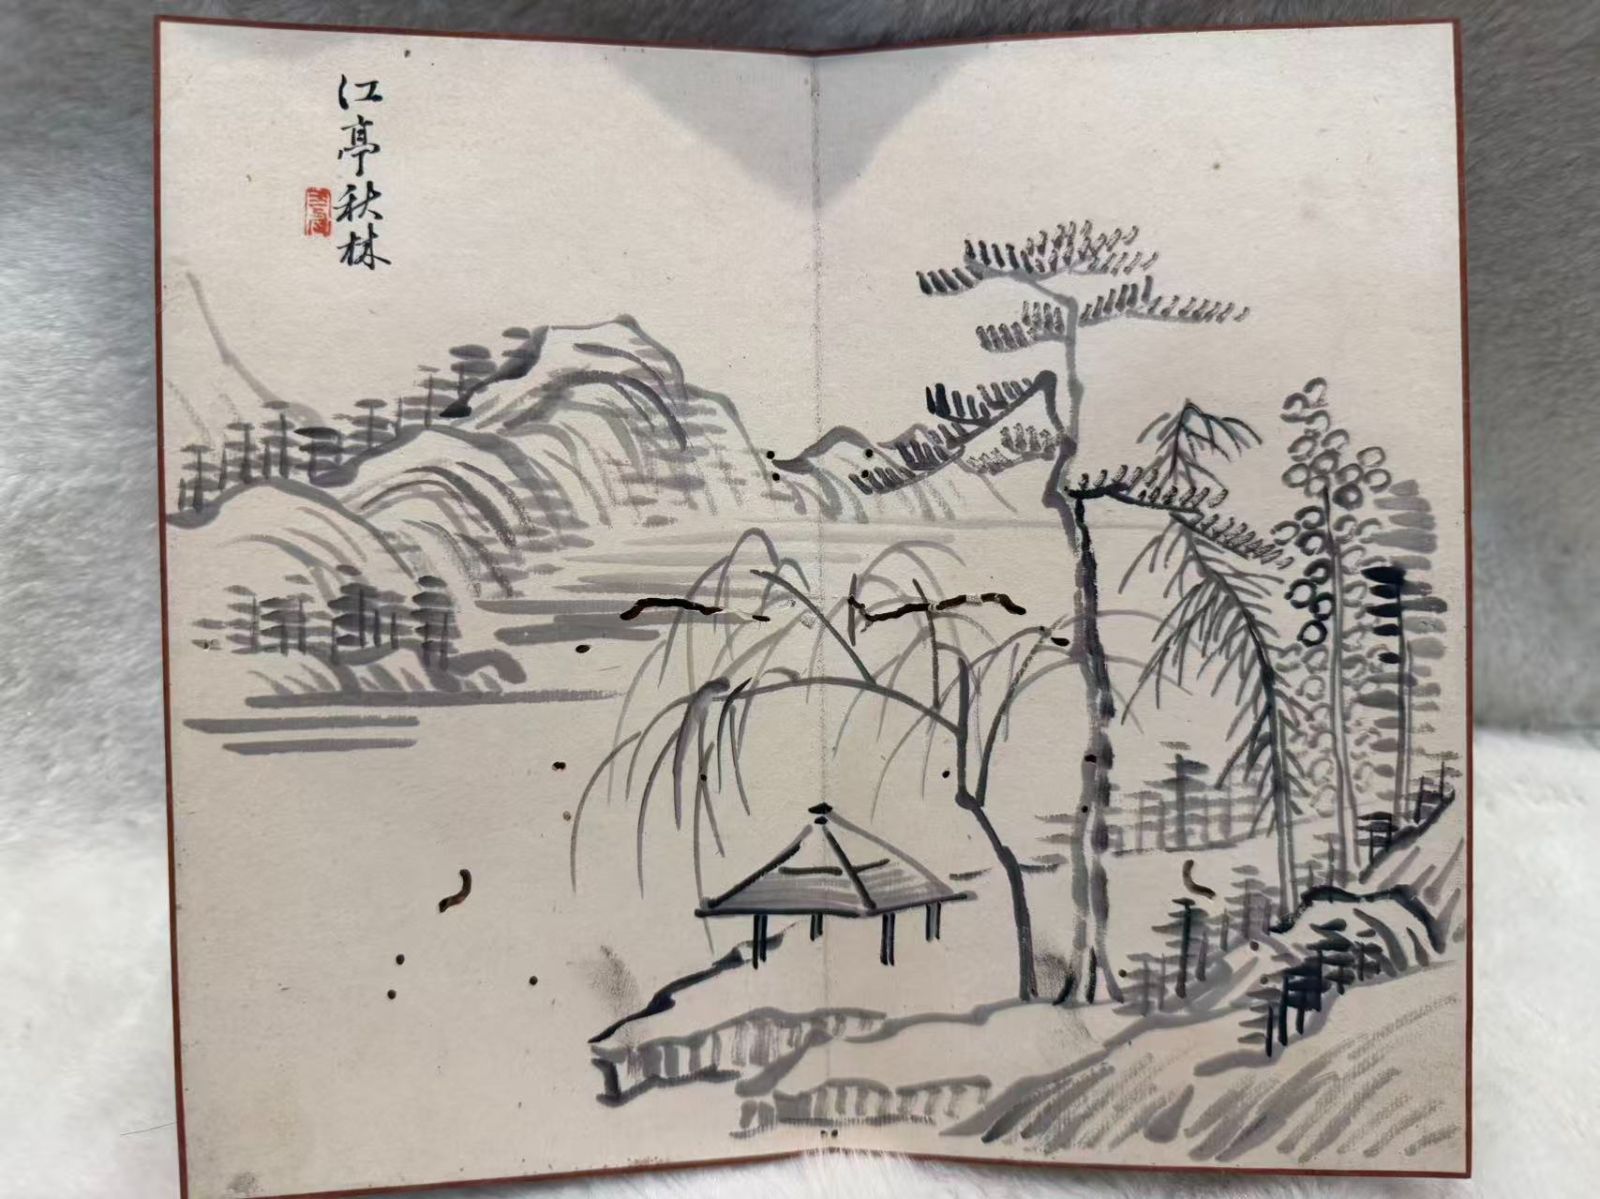 江亭秋林